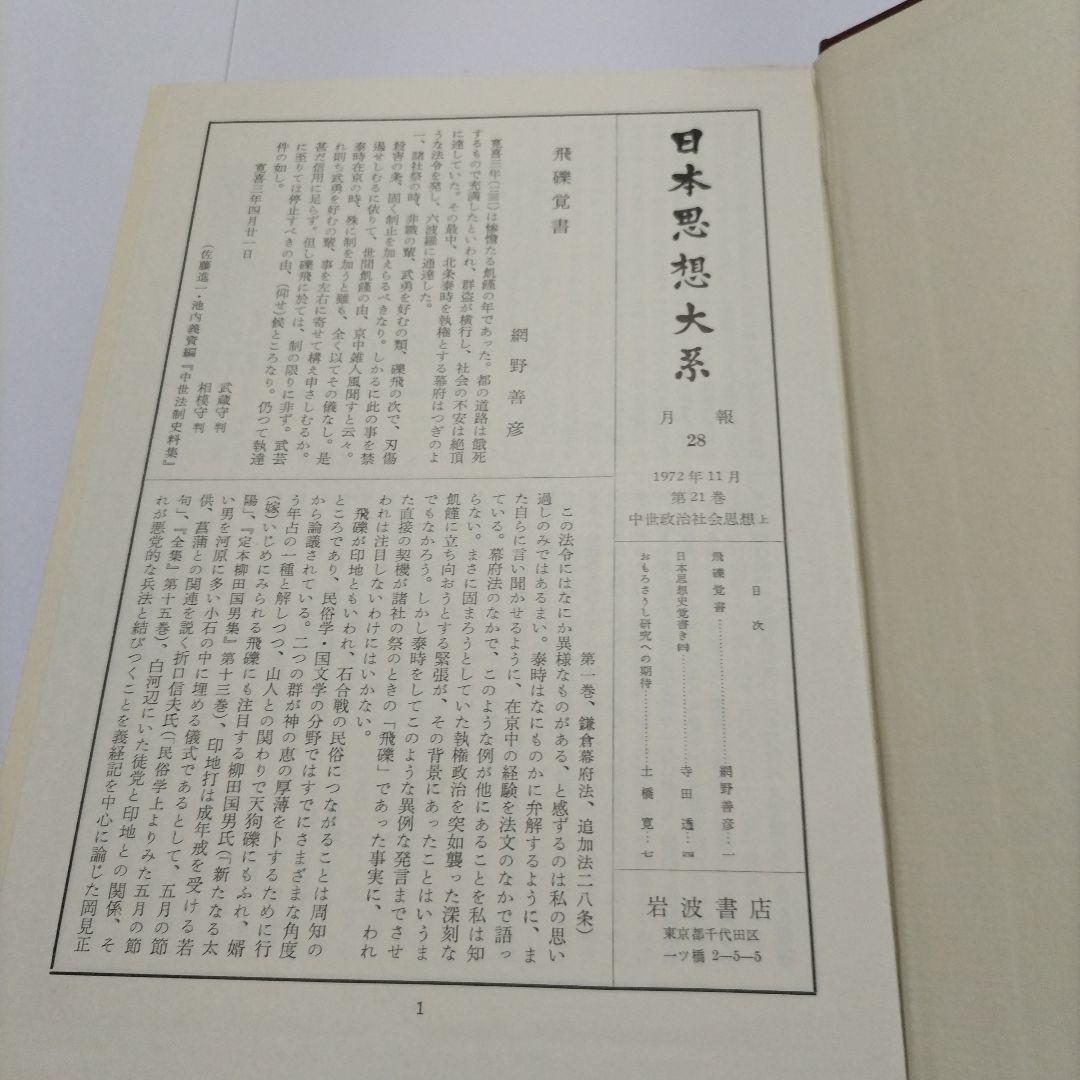 日本思想大系
月報
28
1972年11月
第21巻
中世政治社会思想 上
目次
飛礫覚書……………………網野善彦…一
日本思想史覚書き 四……………………寺田透…四
おもろさうし研究への期待……………土橋寛…七
岩波書店
東京都千代田区
一ツ橋 2—5—5
飛礫覚書
網野善彦
寛喜三年(一二三一)は惨憺たる飢饉の年であった。都の道路は餓死
するもので充満したといわれ、群盗が横行し、社会の不安は絶頂
に達していた。その最中、北条泰時を執権とする幕府はつぎのよ
うな法令を発し、六波羅に通達した。
一、諸社祭の時、非職の輩、武勇を好むの類、礫飛の次で、刃傷
殺害の条、固く制止を加えらるべきなり。しかるに此の事を禁
遏せしむるに依りて、世間飢饉の由、京中雑人風聞すと云々。
泰時在京の時、殊に制を加うと雖も、全く以てその儀なし。是
れ則ち武勇を好むの輩、事を左右に寄せて構え申さしむるか。
甚だ信用に足らず。但し礫飛に於ては、制の限りに非ず。武芸
に至りては停止すべきの由、(仰せ)候ところなり。仍つて執達
件の如し。
寛喜三年四月廿一日
武蔵守判
相模守判
(佐藤進一・池内義資編『中世法制史料集』
第一巻、鎌倉幕府法、追加法二八条)
この法令にはなにか異様なものがある、と感ずるのは私の思い
過しのみではあるまい。泰時はなにものかに弁解するように、ま
た自らに言い聞かせるように、在京中の経験を法文のなかで語っ
ている。幕府法のなかで、このような例が他にあることを私は知
らない。まさに固まろうとしていた執権政治を突如襲った深刻な
飢饉に立ち向おうとする緊張が、その背景にあったことはいうま
でもなかろう。しかし泰時をしてこのような異例な発言までさせ
た直接の契機が諸社の祭のときの「飛礫」であった事実に、われ
われは注目しないわけにはいかない。
飛礫が印地ともいわれ、石合戦の民俗につながることは周知の
ところであり、民俗学・国文学の分野ではすでにさまざまな角度
から論議されている。二つの群が神の恵の厚薄を卜するために行
う年占の一種と解しつつ、山人との関わりで天狗礫にもふれ、婿
(嫁)いじめにみられる飛礫にも注目する柳田国男氏(「新たなる太
陽」、『定本柳田国男集』第十三巻)、印地打は成年戒を受ける若
い男を河原に多い小石の中に埋める儀式であるとして、五月の節
供、菖蒲との関連を説く折口信夫氏(「民俗学上よりみた五月の節
句」、『全集』第十五巻)、白河辺にいた徒党と印地との関係、そ
れが悪党的な兵法と結びつくことを義経記を中心に論じた岡見正
1